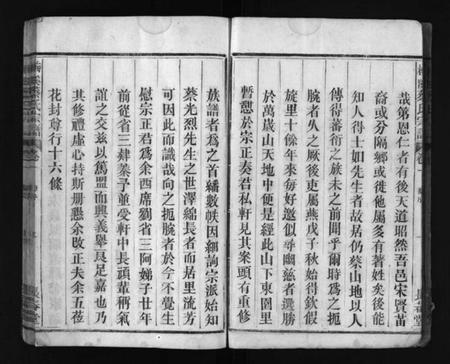 哉第恩仁者有後天道昭然吾邑宋賢苗
裔或分隔鄉或徙他屬多有著姓矣後能
知人得士如先生者故居仍蔡山地以人
傳得蕃衍之族未之前聞乎爾時爲之扼
腕者久之厥後吏屬燕戊子秋始得欽假
旋里十餘年來每好邀似尋幽慈者選勝
於萬歲山天地中便是經此山下東園里
暫憩於宗正奏君私軒見其案頭有重修
族譜者爲之首繙數帙因細詢宗派始知
蔡光烈先生之世澤綿長者居里流芳
可因此而識哉向之扼腕者於今不覺生
慰宗正君爲余西席劉省三阿娣子廿年
前從省三肄業予董受軒中長頑輩稱氣
誼之交兹以篤盟而興義舉良足嘉也乃
其修禮虛心持斯册懇余敗正夫余五蒞
花封尊行十六條